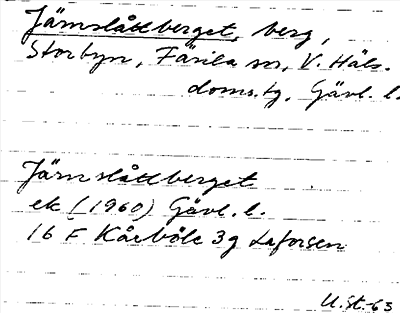 Järnslåttberget, berg,
Storbyn, Färila sn, V. Häls.
doms.tg, Gävl. l.
Järnslåttberget
ek (1960) Gävl. l.
16 F Kårböle 3g Laforsen
U.St.-63